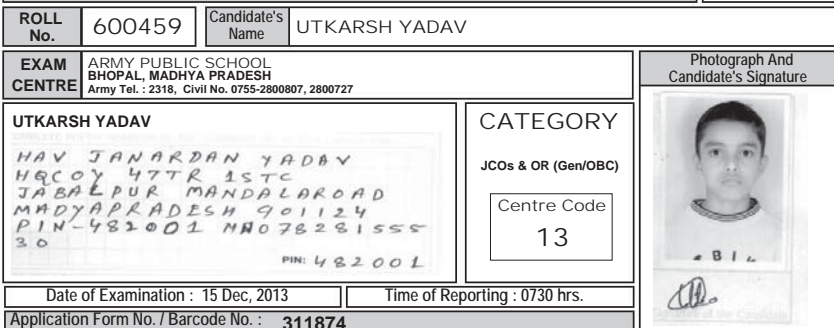 ROLL No. 600459 Candidate's Name UTKARSH YADAV
EXAM CENTRE
ARMY PUBLIC SCHOOL
BHOPAL, MADHYA PRADESH
Army Tel. : 2318, Civil No. 0755-2800807, 2800727
Photograph And
Candidate's Signature
UTKARSH YADAV
HAV JANARDAN YADAV
HQCOY 47TR 1STC
JABALPUR MANDALAROAD
MADYAPRADESH 901124
PIN-482001 MNO78281555
30
PIN: 482001
CATEGORY
JCOs & OR (Gen/OBC)
Centre Code
13
Date of Examination : 15 Dec, 2013
Time of Reporting : 0730 hrs.
Application Form No. / Barcode No. : 311874